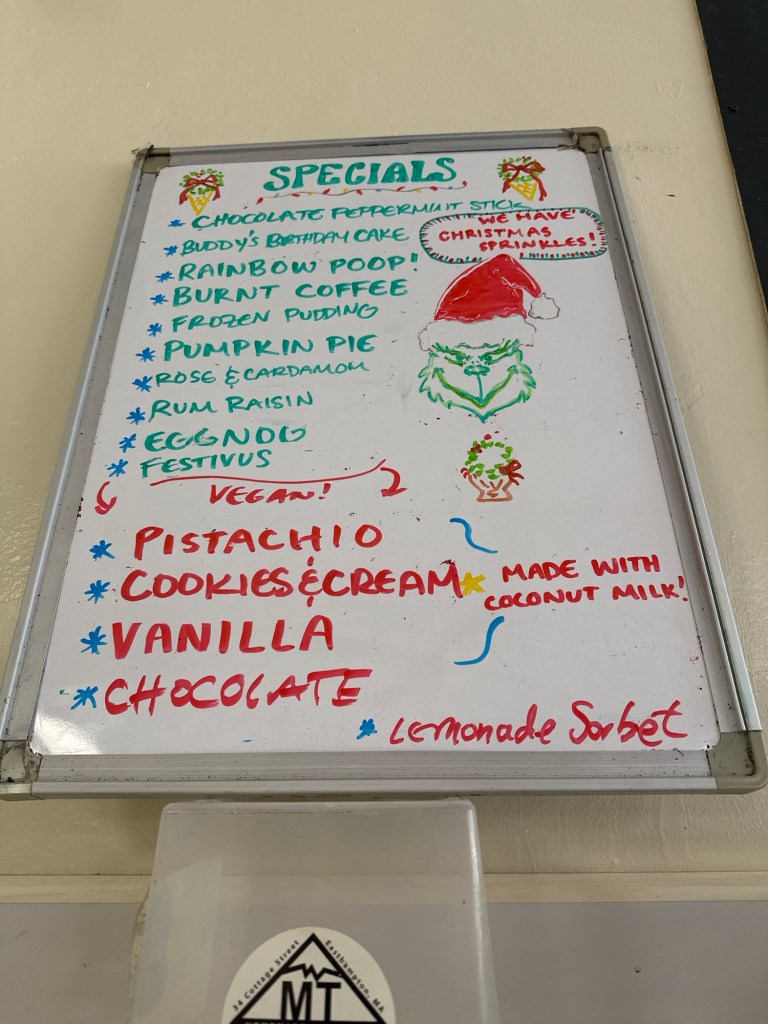 SPECIALS
* CHOCOLATE PEPPERMINT STICK
WE HAVE
CHRISTMAS
SPRINKLES!
* BUDDY'S BIRTHDAY CAKE
* RAINBOW POOP!
* BURNT COFFEE
* FROZEN PUDDING
* PUMPKIN PIE
* ROSE & CARDAMOM
* RUM RAISIN
* EGGNOG
* FESTIVUS
VEGAN!
* PISTACHIO
* COOKIES & CREAM
* VANILLA
* CHOCOLATE
MADE WITH
COCONUT MILK!
* Lemonade Sorbet
34 Cottage Street
Easthampton, MA
MT